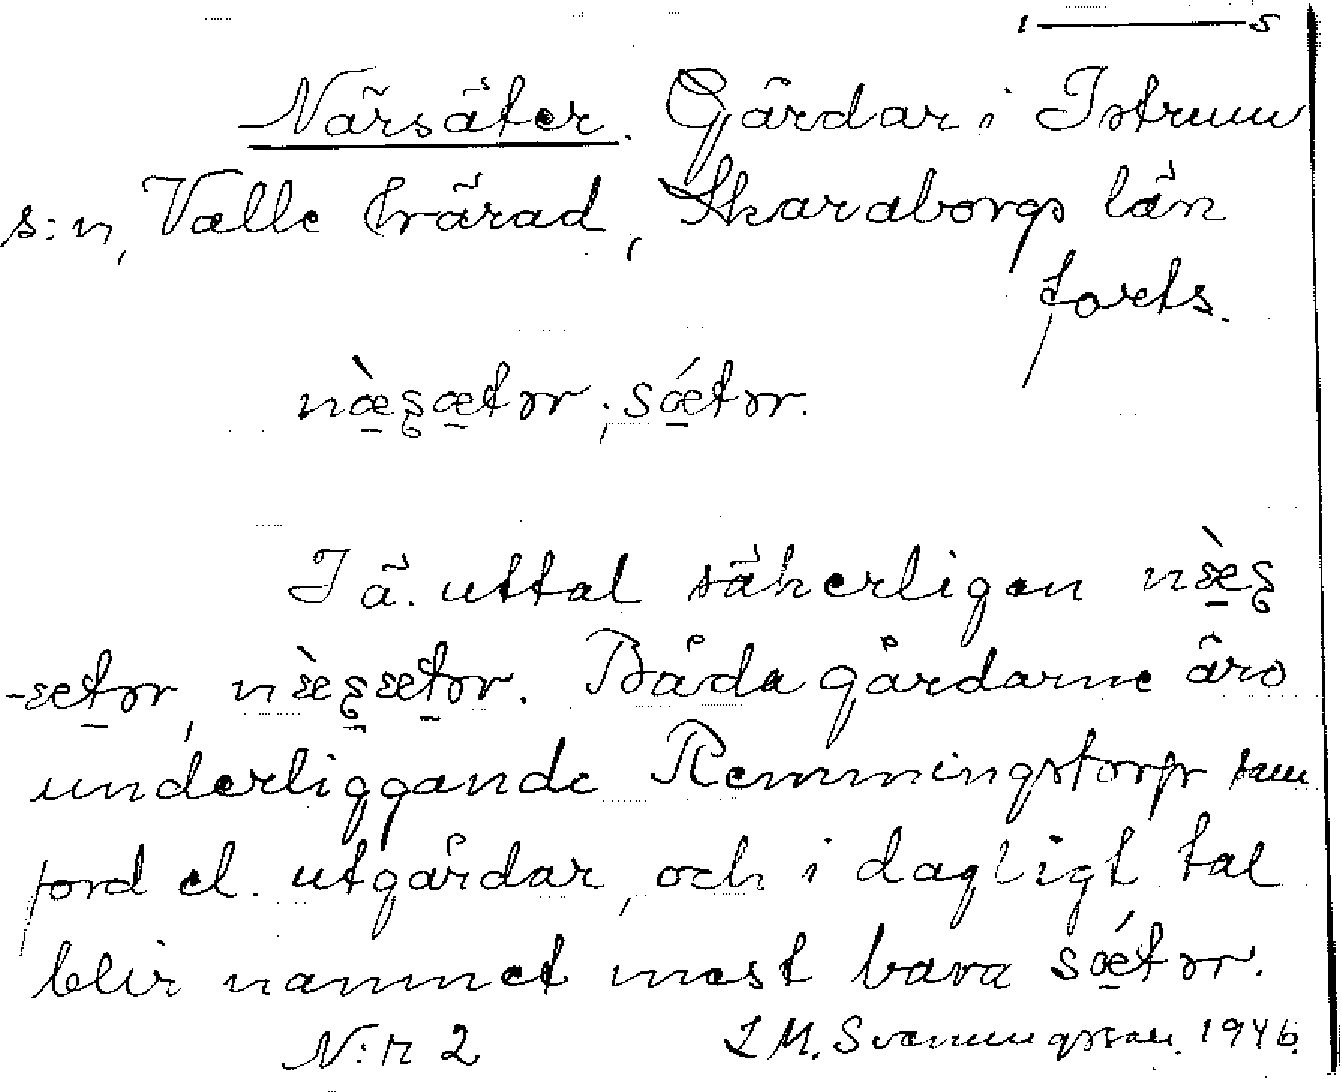 1 — 5
Närsäter. Gårdar i Istrum
s:n, Valle härad, Skaraborgs län
forts.
næ̀ʂætər; sǽtər.
I ä. uttal säkerligen næ̀ʂ
-sætər, næ̀ʂsætər. Båda gårdarne äro
underliggande Remmingstorp som
jord el. utgårdar, och i dagligt tal
blir namnet mest bara sǽtər.
N:r 2 L M. Svanungsson. 1946.